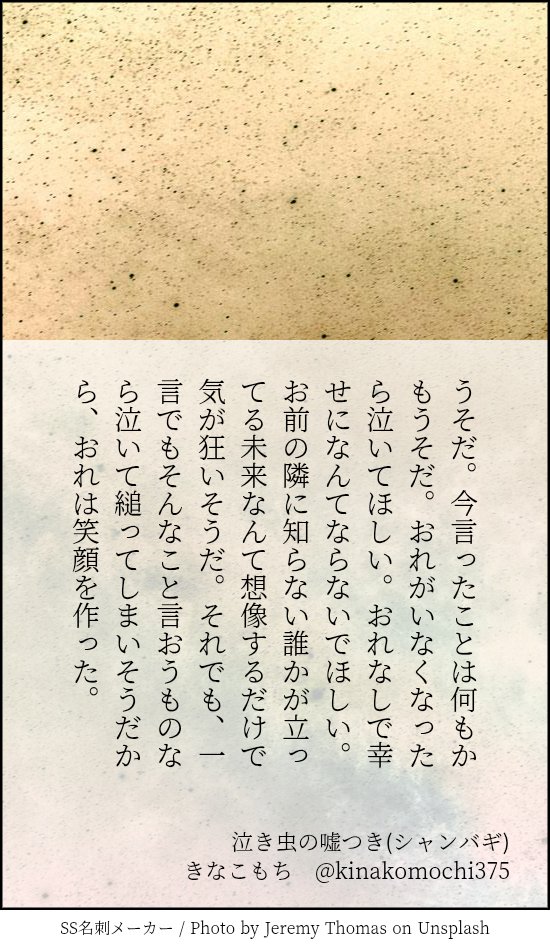 うそだ。今言ったことは何もか
もうそだ。おれがいなくなった
ら泣いてほしい。おれなしで幸
せになんてならないでほしい。
お前の隣に知らない誰かが立っ
てる未来なんて想像するだけで
気が狂いそうだ。それでも、一
言でもそんなこと言おうものな
ら泣いて縋ってしまいそうだか
ら、おれは笑顔を作った。
泣き虫の嘘つき(シャンバギ)
きなこもち　@kinakomochi375
SS名刺メーカー / Photo by Jeremy Thomas on Unsplash